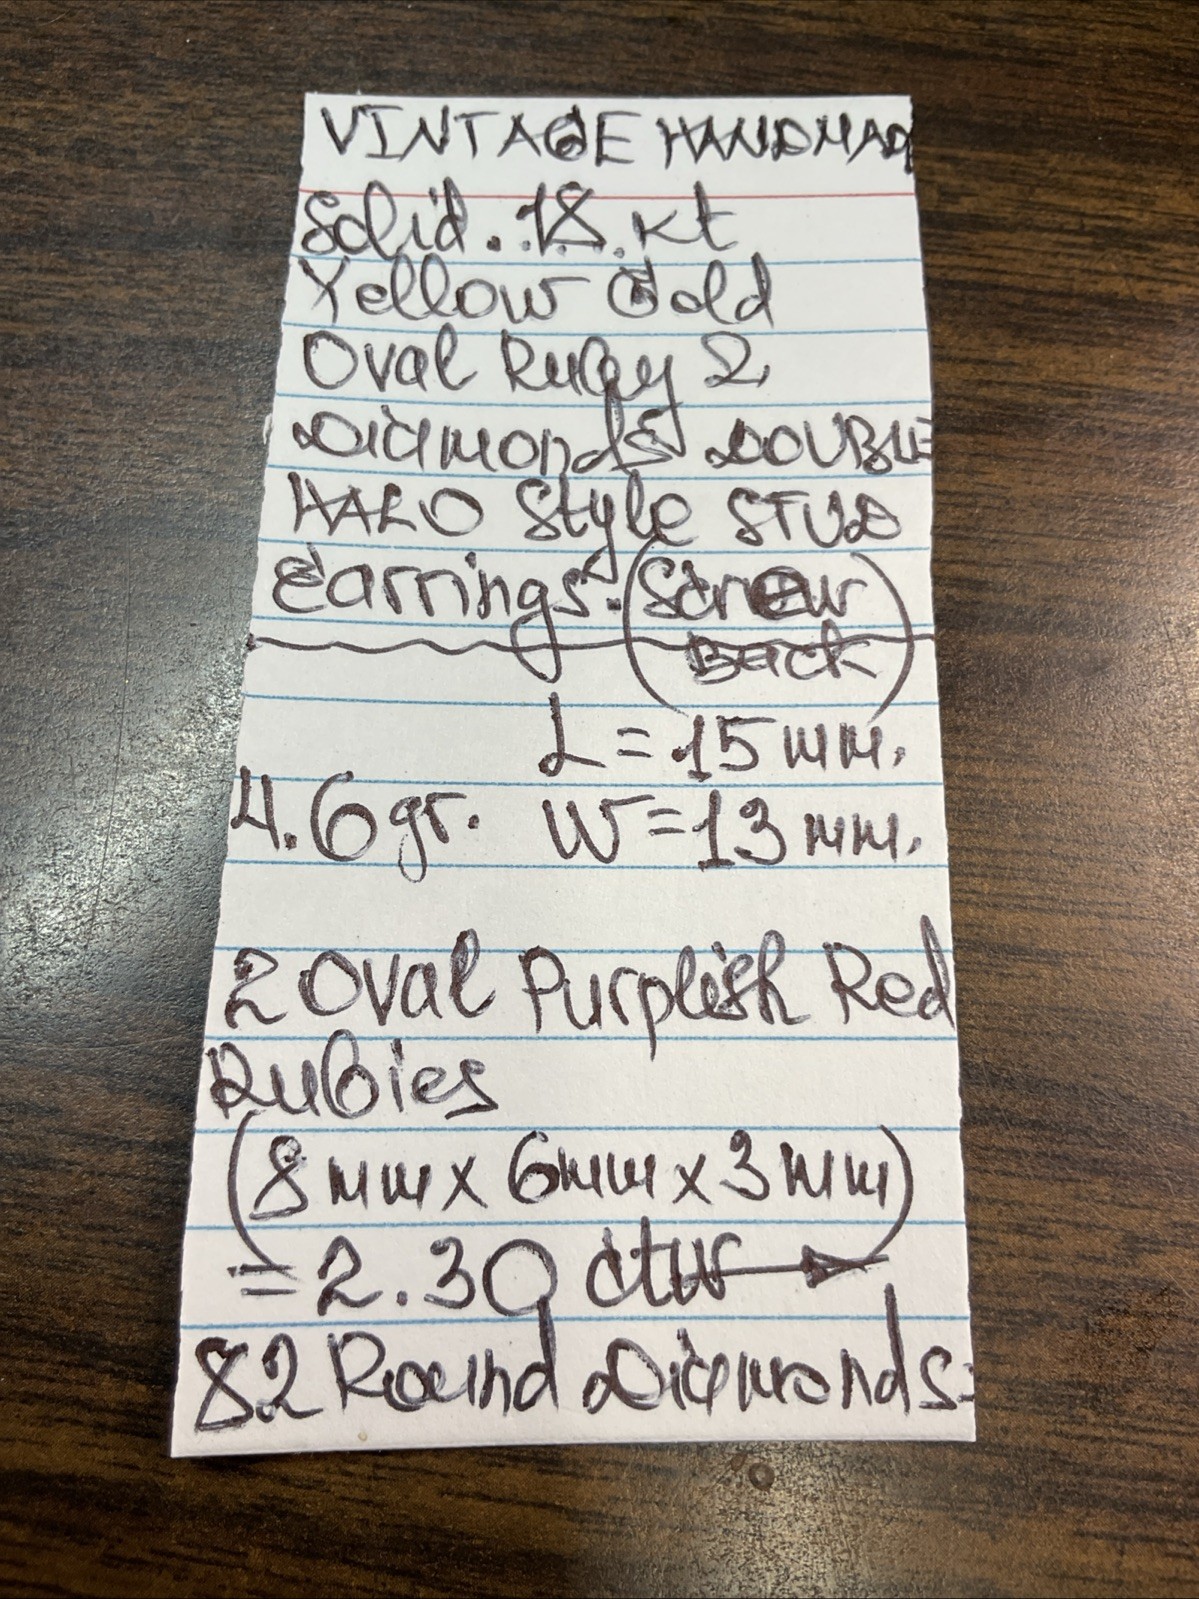 VINTAGE HANDMAD
Solid. 18 kt
Yellow Gold
Oval Ruby 2
Diamonds DOUBLE
HALO Style STUD
earrings. (Screw
Back)
L = 15 mm.
4.6 gr. W = 13 mm.
2 Oval Purplish Red
Rubies
(8 mm x 6 mm x 3 mm)
= 2.30 ctw →
82 Round Diamonds=